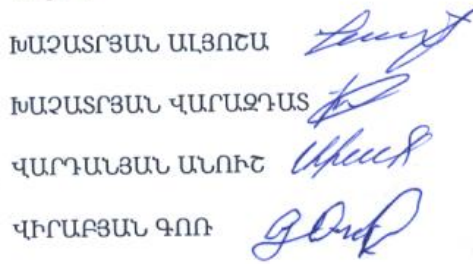 ԽԱՉԱՏՐՅԱՆ ԱԼՅՈՇԱ
ԽԱՉԱՏՐՅԱՆ ՎԱՐԱԶԴԱՏ
ՎԱՐԴԱՆՅԱՆ ԱՆՈՒՇ
ՎԻՐԱԲՅԱՆ ԳՈՌ